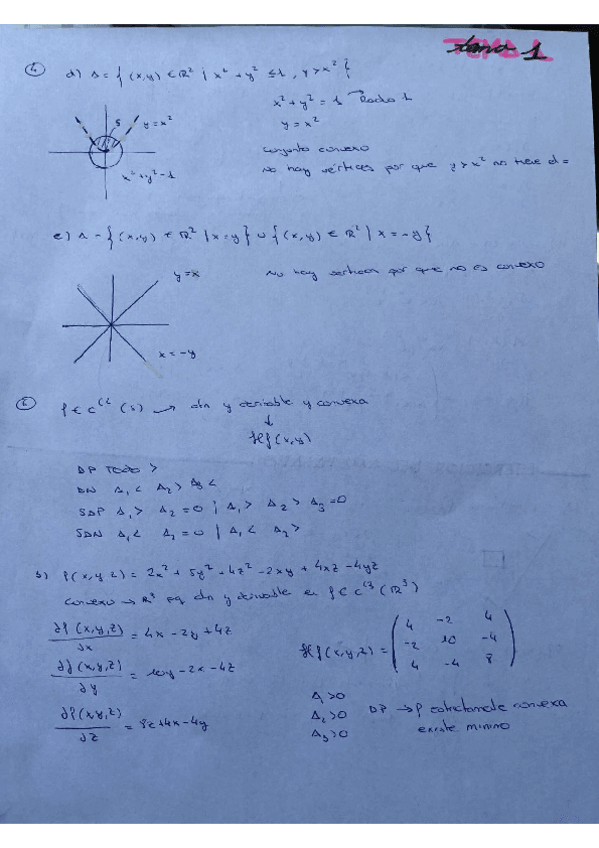 tema 1
4 d) Δ = { (x,y) ∈ R² | x² + y² ≤ 1 , y > x² }
x² + y² = 1 → Radio 1
y = x²
S
y = x²
x² + y² - 1
conjunto convexo
No hay vértices por que y > x² no tiene el =
e) Δ - { (x,y) ∈ R² | x = y } ∪ { (x,y) ∈ R² | x = -y }
y = x
No hay vertices por que no es convexo
x = -y
f ∈ C² (S) → dn y derivable y convexa
↓
Hf (x,y)
DP Todo >
DN Δ₁ < Δ₂ > Δ₃ <
SDP Δ₁ > Δ₂ = 0 | Δ₁ > Δ₂ > Δ₃ = 0
SDN Δ₁ < Δ₂ = 0 | Δ₁ < Δ₂ >
b) f(x,y,z) = 2x² + 5y² - 4z² - 2xy + 4xz - 4yz
Convexo → R³ pq dn y derivable en f ∈ C² (R³)
∂f (x,y,z) / ∂x = 4x - 2y + 4z
∂f (x,y,z) / ∂y = 10y - 2x - 4z
∂f (x,y,z) / ∂z = 8z + 4x - 4y
Hf (x,y,z) = ( 4 -2 4
-2 10 -4
4 -4 8 )
Δ₁ > 0
Δ₂ > 0 DP → f estrictamente convexa
Δ₃ > 0 existe minimo